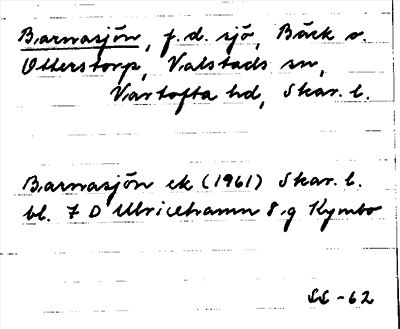 Barnasjön, f.d. sjö, Bäck v.
Utterstorp, Valstads sn,
Vartofta hd, Skar. l.
Barnasjön ek (1961) Skar. l.
bl. 7 D Ulricehamn 8 g Kymbo
SS -62